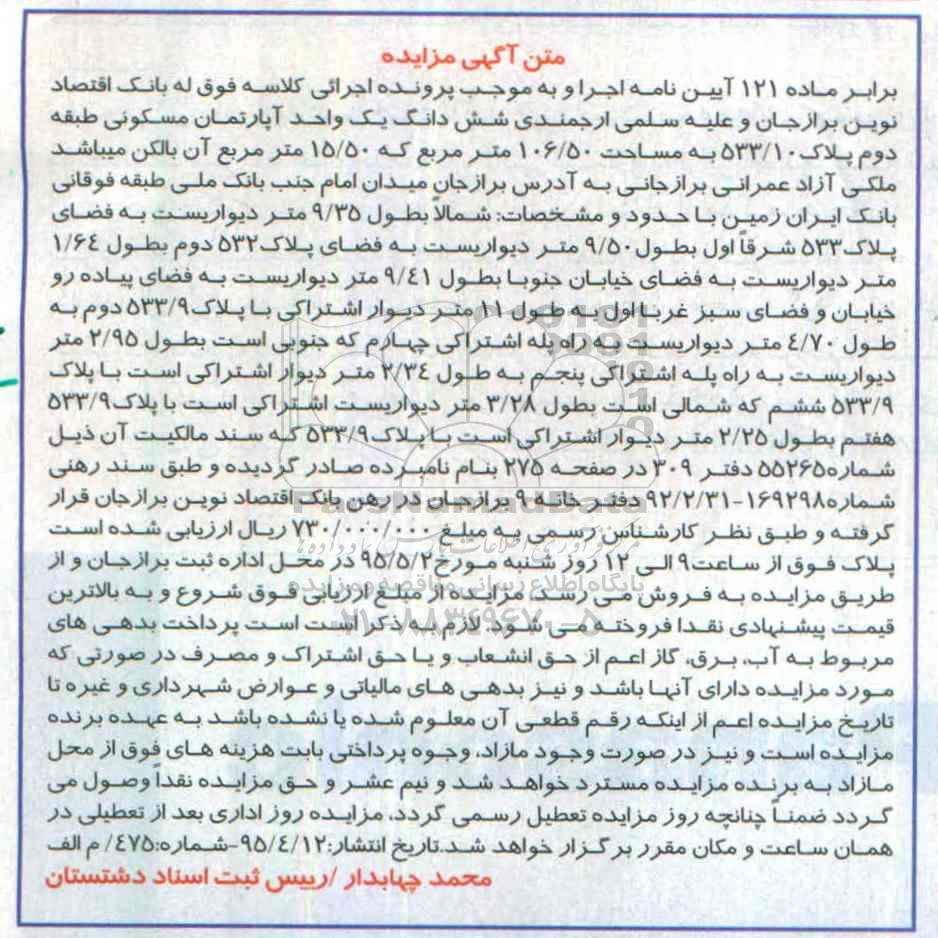 متن آگهی مزایده
برابر ماده ۱۲۱ آیین نامه اجرا و به موجب پرونده اجرائی کلاسه فوق له بانک اقتصاد
نوین برازجان و علیه سلمی ارجمندی شش دانگ یک واحد آپارتمان مسکونی طبقه
دوم پلاک۵۳۳/۱۰ به مساحت ۱۰۶/۵۰ متر مربع که ۱۵/۵۰ متر مربع آن بالکن میباشد
ملکی آزاد عمرانی برازجانی به آدرس برازجان میدان امام جنب بانک ملی طبقه فوقانی
بانک ایران زمین با حدود و مشخصات: شمالاً بطول ۹/۳۵ متر دیواریست به فضای
پلاک۵۳۳ شرقاً اول بطول۹/۵۰ متر دیواریست به فضای پلاک۵۳۲ دوم بطول ۱/۶۴
متر دیواریست به فضای خیابان جنوبا بطول ۹/۴۱ متر دیواریست به فضای پیاده رو
خیابان و فضای سبز غربا اول به طول ۱۱ متر دیوار اشتراکی با پلاک۵۳۳/۹ دوم به
طول ۴/۷۰ متر دیواریست به راه پله اشتراکی چهارم که جنوبی است بطول ۲/۹۵ متر
دیواریست به راه پله اشتراکی پنجم به طول ۲/۳۴ متر دیوار اشتراکی است با پلاک
۵۳۳/۹ ششم که شمالی است بطول ۳/۲۸ متر دیواریست اشتراکی است با پلاک۵۳۳/۹
هفتم بطول ۲/۲۵ متر دیوار اشتراکی است با پلاک۵۳۳/۹ که سند مالکیت آن ذیل
شماره۵۵۲۶۵ دفتر ۳۰۹ در صفحه ۲۷۵ بنام نامبرده صادر گردیده و طبق سند رهنی
شماره۱۶۹۲۹۸-۹۲/۲/۳۱ دفتر خانه ۹ برازجان در رهن بانک اقتصاد نوین برازجان قرار
گرفته و طبق نظر کارشناس رسمی به مبلغ ۷۳۰/۰۰۰/۰۰۰ ریال ارزیابی شده است
پلاک فوق از ساعت۹ الی ۱۲ روز شنبه مورخ۹۵/۵/۲ در محل اداره ثبت برازجان و از
طریق مزایده به فروش می رسد مزایده از مبلغ ارزیابی فوق شروع و به بالاترین
قیمت پیشنهادی نقدا فروخته می شود. لازم به ذکر است است پرداخت بدهی های
مربوط به آب، برق، گاز اعم از حق انشعاب و یا حق اشتراک و مصرف در صورتی که
مورد مزایده دارای آنها باشد و نیز بدهی های مالیاتی و عوارض شهرداری و غیره تا
تاریخ مزایده اعم از اینکه رقم قطعی آن معلوم شده یا نشده باشد به عهده برنده
مزایده است و نیز در صورت وجود مازاد، وجوه پرداختی بابت هزینه های فوق از محل
مازاد به برنده مزایده مسترد خواهد شد و نیم عشر و حق مزایده نقداً وصول می
گردد ضمناً چنانچه روز مزایده تعطیل رسمی گردد، مزایده روز اداری بعد از تعطیلی در
همان ساعت و مکان مقرر برگزار خواهد شد.تاریخ انتشار:۹۵/۴/۱۲-شماره:۴۷۵/ م الف
محمد چهابدار /رییس ثبت اسناد دشتستان
ParsNamadData
پایگاه اطلاع رسانی مناقصه و مزایده
۰۲۱-۸۸۳۴۹۶۷۰-۵